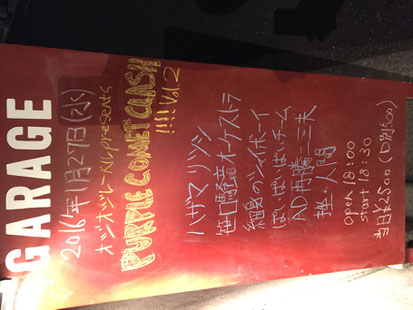 GARAGE
2016年1月27日(水)
オジオジレーベルpresents
PURPLE COMET CLASH
!!!! Vol.2
ハザマ リツシ
笹口騒音オーケストラ
細身のシャイボーイ
ぽいぽいぽいチーム
AD斉藤 三夫
揺れ人間
open 18:00
start 18:30
当日¥2500(D別500)